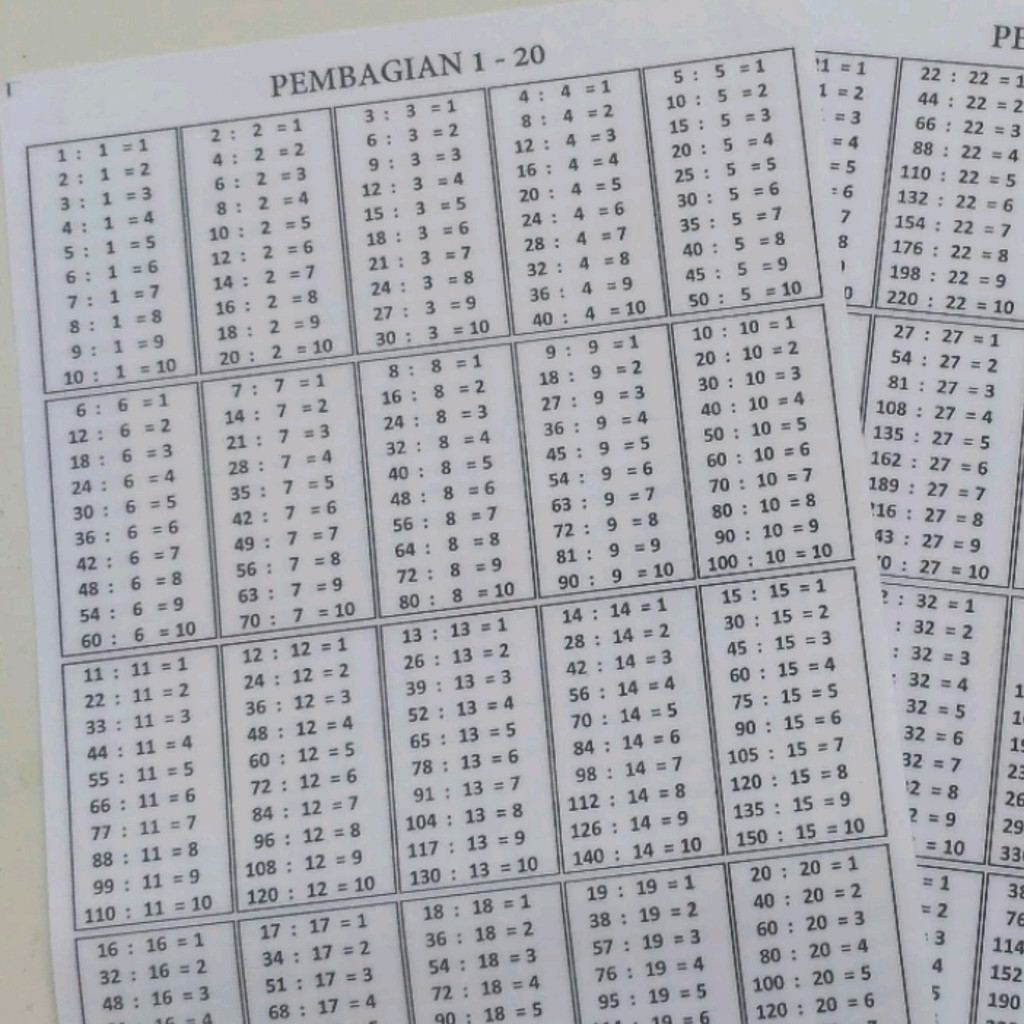 PEMBAGIAN 1 - 20
1 : 1 = 1
2 : 1 = 2
3 : 1 = 3
4 : 1 = 4
5 : 1 = 5
6 : 1 = 6
7 : 1 = 7
8 : 1 = 8
9 : 1 = 9
10 : 1 = 10
2 : 2 = 1
4 : 2 = 2
6 : 2 = 3
8 : 2 = 4
10 : 2 = 5
12 : 2 = 6
14 : 2 = 7
16 : 2 = 8
18 : 2 = 9
20 : 2 = 10
3 : 3 = 1
6 : 3 = 2
9 : 3 = 3
12 : 3 = 4
15 : 3 = 5
18 : 3 = 6
21 : 3 = 7
24 : 3 = 8
27 : 3 = 9
30 : 3 = 10
4 : 4 = 1
8 : 4 = 2
12 : 4 = 3
16 : 4 = 4
20 : 4 = 5
24 : 4 = 6
28 : 4 = 7
32 : 4 = 8
36 : 4 = 9
40 : 4 = 10
5 : 5 = 1
10 : 5 = 2
15 : 5 = 3
20 : 5 = 4
25 : 5 = 5
30 : 5 = 6
35 : 5 = 7
40 : 5 = 8
45 : 5 = 9
50 : 5 = 10
6 : 6 = 1
12 : 6 = 2
18 : 6 = 3
24 : 6 = 4
30 : 6 = 5
36 : 6 = 6
42 : 6 = 7
48 : 6 = 8
54 : 6 = 9
60 : 6 = 10
7 : 7 = 1
14 : 7 = 2
21 : 7 = 3
28 : 7 = 4
35 : 7 = 5
42 : 7 = 6
49 : 7 = 7
56 : 7 = 8
63 : 7 = 9
70 : 7 = 10
8 : 8 = 1
16 : 8 = 2
24 : 8 = 3
32 : 8 = 4
40 : 8 = 5
48 : 8 = 6
56 : 8 = 7
64 : 8 = 8
72 : 8 = 9
80 : 8 = 10
9 : 9 = 1
18 : 9 = 2
27 : 9 = 3
36 : 9 = 4
45 : 9 = 5
54 : 9 = 6
63 : 9 = 7
72 : 9 = 8
81 : 9 = 9
90 : 9 = 10
10 : 10 = 1
20 : 10 = 2
30 : 10 = 3
40 : 10 = 4
50 : 10 = 5
60 : 10 = 6
70 : 10 = 7
80 : 10 = 8
90 : 10 = 9
100 : 10 = 10
11 : 11 = 1
22 : 11 = 2
33 : 11 = 3
44 : 11 = 4
55 : 11 = 5
66 : 11 = 6
77 : 11 = 7
88 : 11 = 8
99 : 11 = 9
110 : 11 = 10
12 : 12 = 1
24 : 12 = 2
36 : 12 = 3
48 : 12 = 4
60 : 12 = 5
72 : 12 = 6
84 : 12 = 7
96 : 12 = 8
108 : 12 = 9
120 : 12 = 10
13 : 13 = 1
26 : 13 = 2
39 : 13 = 3
52 : 13 = 4
65 : 13 = 5
78 : 13 = 6
91 : 13 = 7
104 : 13 = 8
117 : 13 = 9
130 : 13 = 10
14 : 14 = 1
28 : 14 = 2
42 : 14 = 3
56 : 14 = 4
70 : 14 = 5
84 : 14 = 6
98 : 14 = 7
112 : 14 = 8
126 : 14 = 9
140 : 14 = 10
15 : 15 = 1
30 : 15 = 2
45 : 15 = 3
60 : 15 = 4
75 : 15 = 5
90 : 15 = 6
105 : 15 = 7
120 : 15 = 8
135 : 15 = 9
150 : 15 = 10
16 : 16 = 1
32 : 16 = 2
48 : 16 = 3
16 = 4
17 : 17 = 1
34 : 17 = 2
51 : 17 = 3
68 : 17 = 4
18 : 18 = 1
36 : 18 = 2
54 : 18 = 3
72 : 18 = 4
90 : 18 = 5
19 : 19 = 1
38 : 19 = 2
57 : 19 = 3
76 : 19 = 4
95 : 19 = 5
19 = 6
20 : 20 = 1
40 : 20 = 2
60 : 20 = 3
80 : 20 = 4
100 : 20 = 5
120 : 20 = 6
PE
= 1
= 2
= 3
= 4
= 5
= 6
7
8
22 : 22 = 1
44 : 22 = 2
66 : 22 = 3
88 : 22 = 4
110 : 22 = 5
132 : 22 = 6
154 : 22 = 7
176 : 22 = 8
198 : 22 = 9
220 : 22 = 10
27 : 27 = 1
54 : 27 = 2
81 : 27 = 3
108 : 27 = 4
135 : 27 = 5
162 : 27 = 6
189 : 27 = 7
: 27 = 8
: 27 = 9
: 27 = 10
: 32 = 1
: 32 = 2
: 32 = 3
: 32 = 4
32 = 5
32 = 6
32 = 7
= 8
= 9
= 10
= 1
= 2
3
4
5
114
152
190